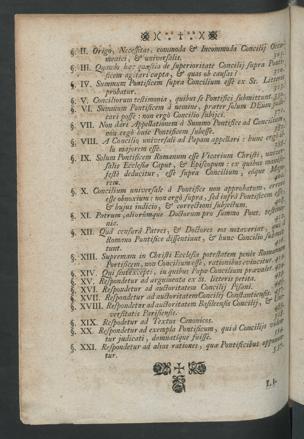 §. II. Origo, Necessitas, commoda & Incommoda Concilij Oecu-
menici, & universalis.
§. III. Quando hæc quæstio de superioritate Concilij supra Ponti-
ficem agitari cœpta, & quas ob causas?
§. IV. Summum Pontificem supra Concilium esse ex Sc. Litteris
probatur.
§. V. Conciliorum testimonia, quibus se Pontifici submittunt.
§. VI. Summum Pontificem à nemine, præter solum DEum judi-
cari posse: non ergò Concilio subijci.
§. VII. Non dari Appellationem à Summo Pontifice ad Concilium,
neu ergò huic Pontificem subesse.
§. VIII. A Concilio universali ad Papam appellari: hunc ergò il-
lo majorem esse.
§. IX. Solum Pontificem Romanum esse Vicarium Christi, univer-
salis Ecclesiæ Caput, & Episcopum: ex quibus manife-
stò deducitur, esse supra Concilium, eique
rem.
§. X. Concilium universale à Pontifice non approbatum, errori
esse obnoxium: non ergò supra, sed infra Pontificem esse,
& hujus indicto, & correctioni subjectum.
§. XI. Patrum, aliorúmque Doctorum pro Summo Pont. testimo-
nia.
§. XII. Quid censurâ Patres, & Doctores
Romano Pontifice dissentiunt, & hunc Concilio submit-
tunt.
§. XIII. Supremam in Christi Ecclesia potestatem penès Romanum
Pontificem, non Concilium esse, rationibus evincitur.
§. XIV. Qui sint excepti, in quibus Papæ Concilium prævalet.
§. XV. Respondetur ad argumenta ex Sc. litteris petita.
§. XVI. Respondetur ad auctoritatem Concilij Pisani.
§. XVII. Respondetur ad auctoritatem Concilij Constantiensis.
§. XVIII. Respondetur ad auctoritatem Basileensis Concilij, & Uni-
versitatis Parisiensis.
§. XIX. Respondetur ad Textus Canonicos.
§. XX. Respondetur ad exempla Pontificum, qui à Concilijs viden-
tur judicati, demnatique fuisse.
§. XXI. Respondetur ad alias rationes, quæ Pontificibus opponun-
tur.